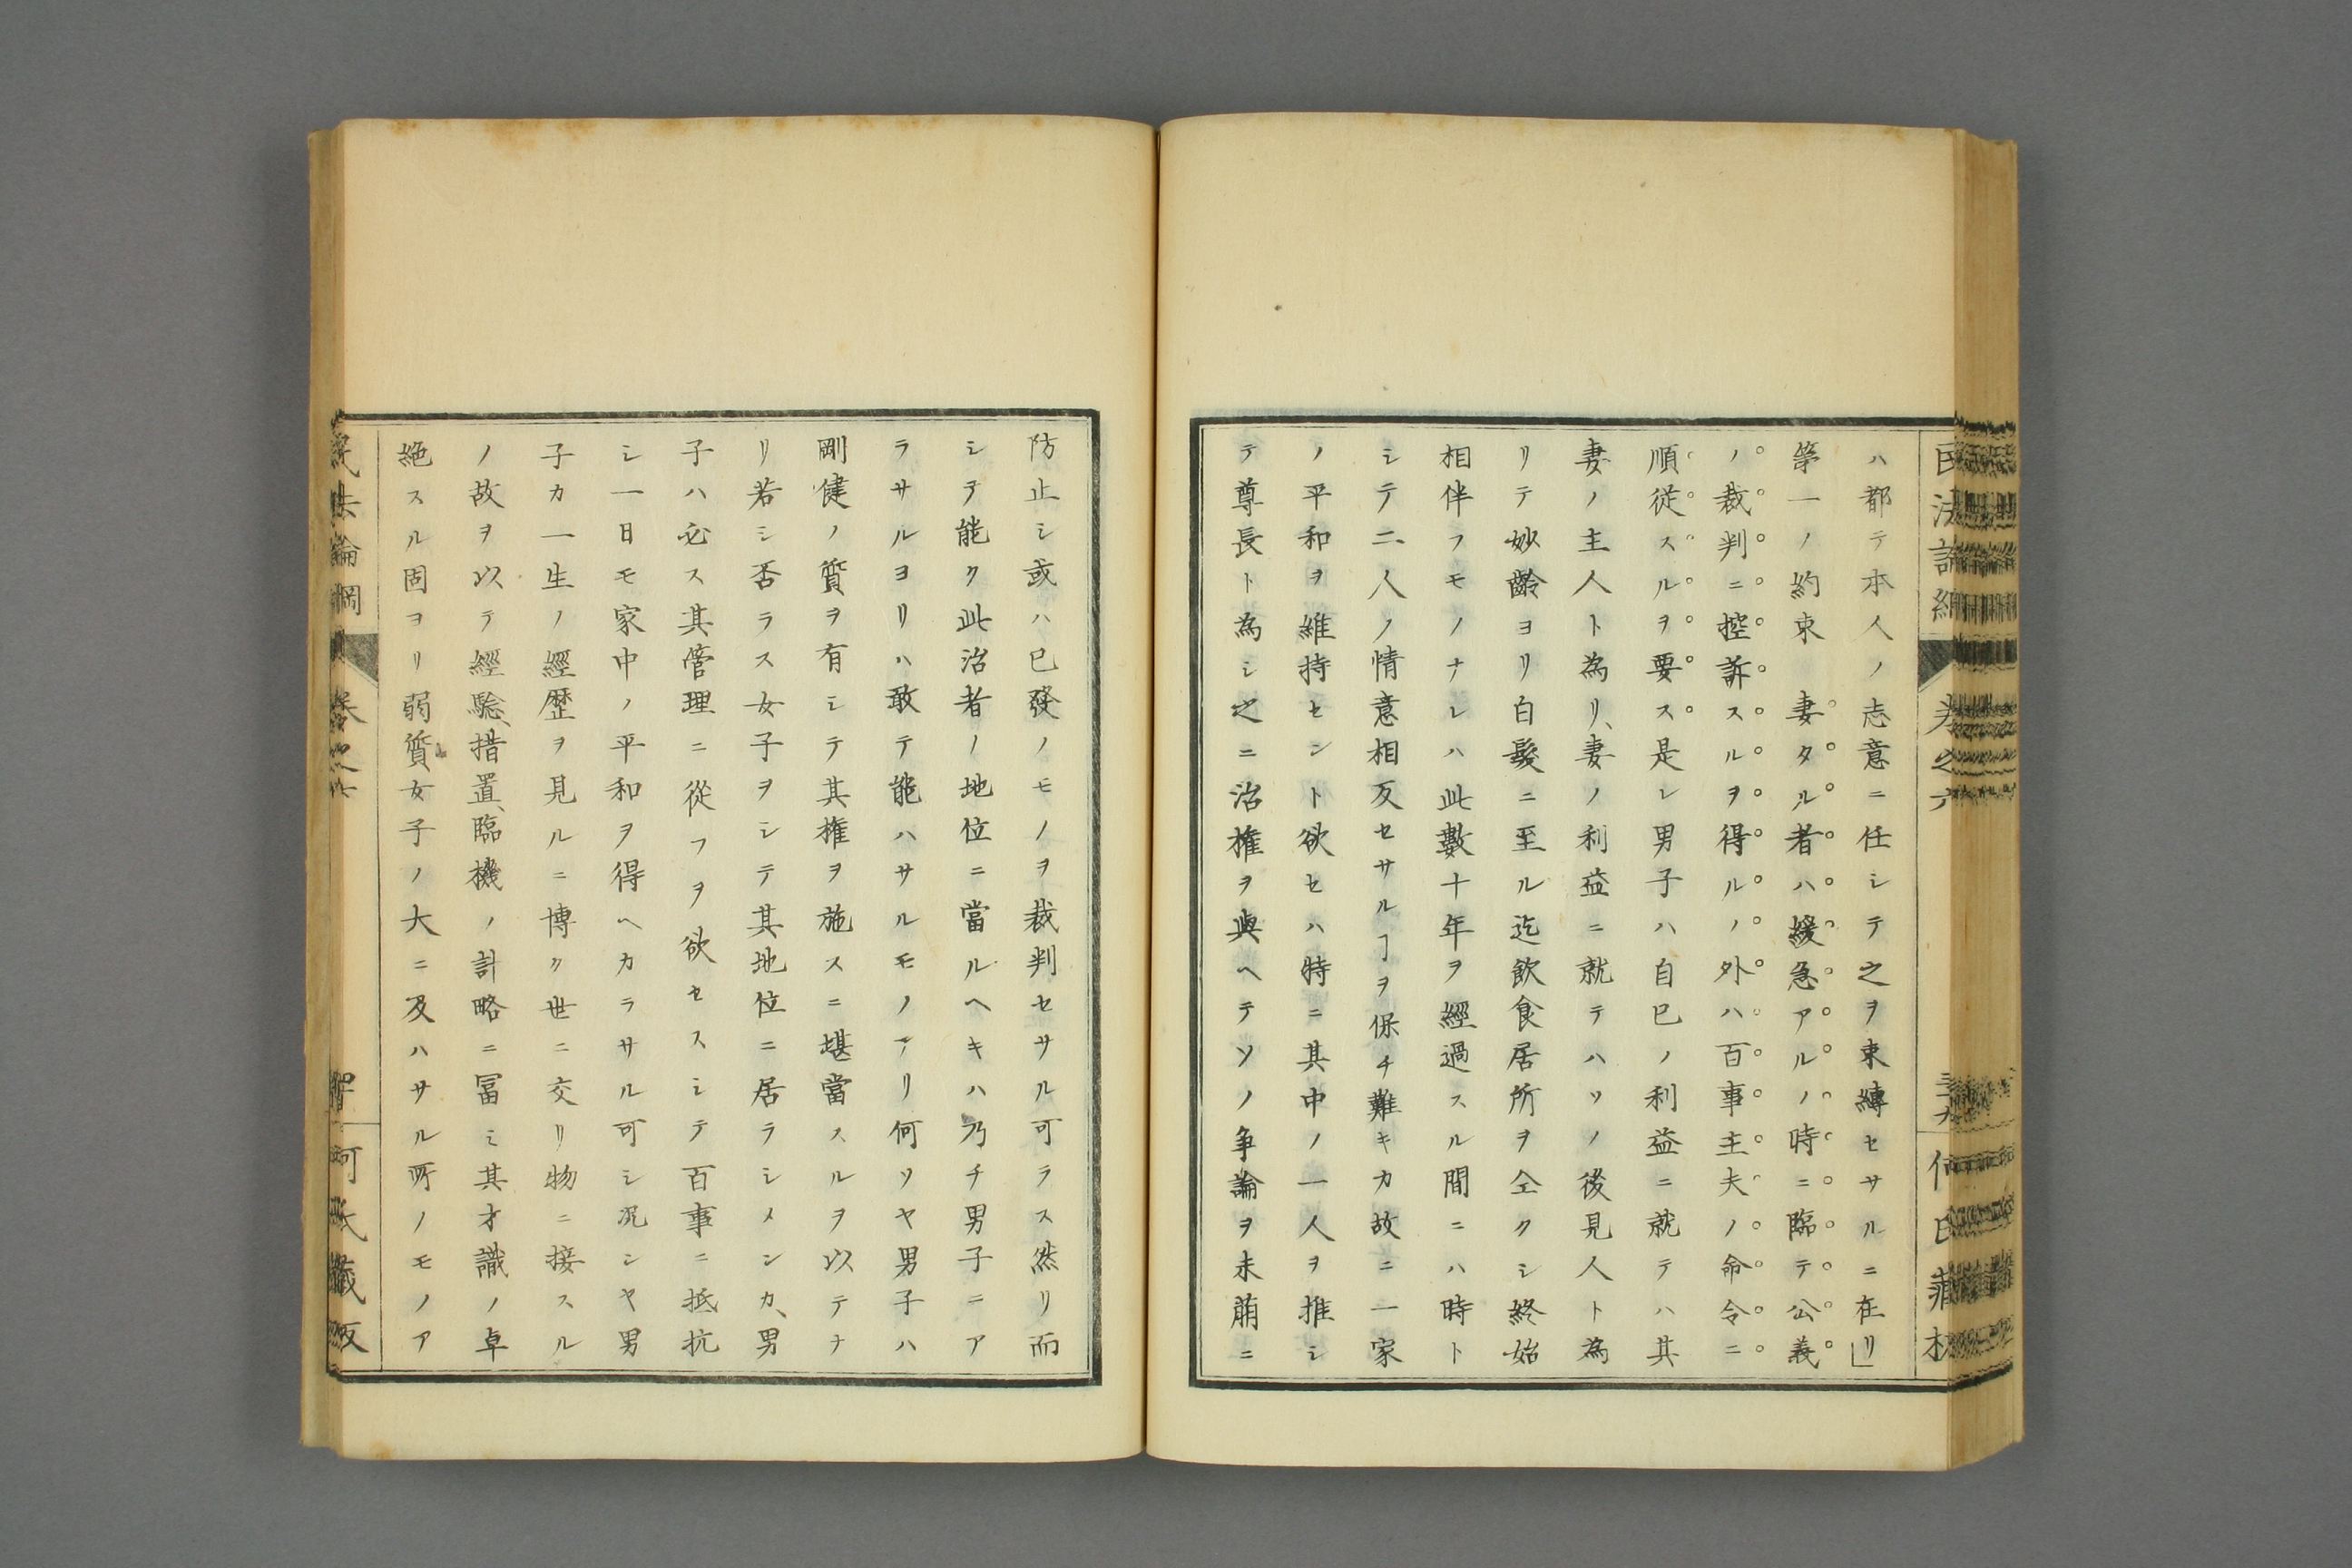 ハ都テ本人ノ志意ニ任シテ之ヲ束縛セサルニ在リ」
第一ノ約束　妻タル者ハ緩急アルノ時ニ臨テ公義
ノ裁判ニ控訴スルヲ得ルノ外ハ百事主夫ノ命令ニ
順従スルヲ要ス是レ男子ハ自己ノ利益ニ就テハ其
妻ノ主人ト為リ、妻ノ利益ニ就テハソノ後見人ト為
リテ妙齢ヨリ白髪ニ至ル迄飲食居所ヲ仝クシ終始
相伴フモノナレハ此數十年ヲ經過スル間ニハ時ト
シテ二人ノ情意相反セサルヿヲ保チ難キカ故ニ一家
ノ平和ヲ維持セント欲セハ特ニ其中ノ一人ヲ推シ
テ尊長ト為シ之ニ治権ヲ與ヘテソノ争論ヲ未萠ニ
防止シ或ハ已發ノモノヲ裁判セサル可ラス然リ而
シテ能ク此治者ノ地位ニ當ルヘキハ乃チ男子ニア
ラサルヨリハ敢テ能ハサルモノナリ何ソヤ男子ハ
剛健ノ質ヲ有シテ其権ヲ施スニ堪當スルヲ以テナ
リ若シ否ラス女子ヲシテ其地位ニ居ラシメンカ、男
子ハ必ス其管理ニ從フヲ欲セスシテ百事ニ抵抗
シ一日モ家中ノ平和ヲ得ヘカラサル可シ况シヤ男
子カ一生ノ經歴ヲ見ルニ博ク世ニ交リ物ニ接スル
ノ故ヲ以テ經驗、措置、臨機ノ計略ニ冨ミ其才識ノ卓
絶スル固ヨリ弱質女子ノ大ニ及ハサル所ノモノア